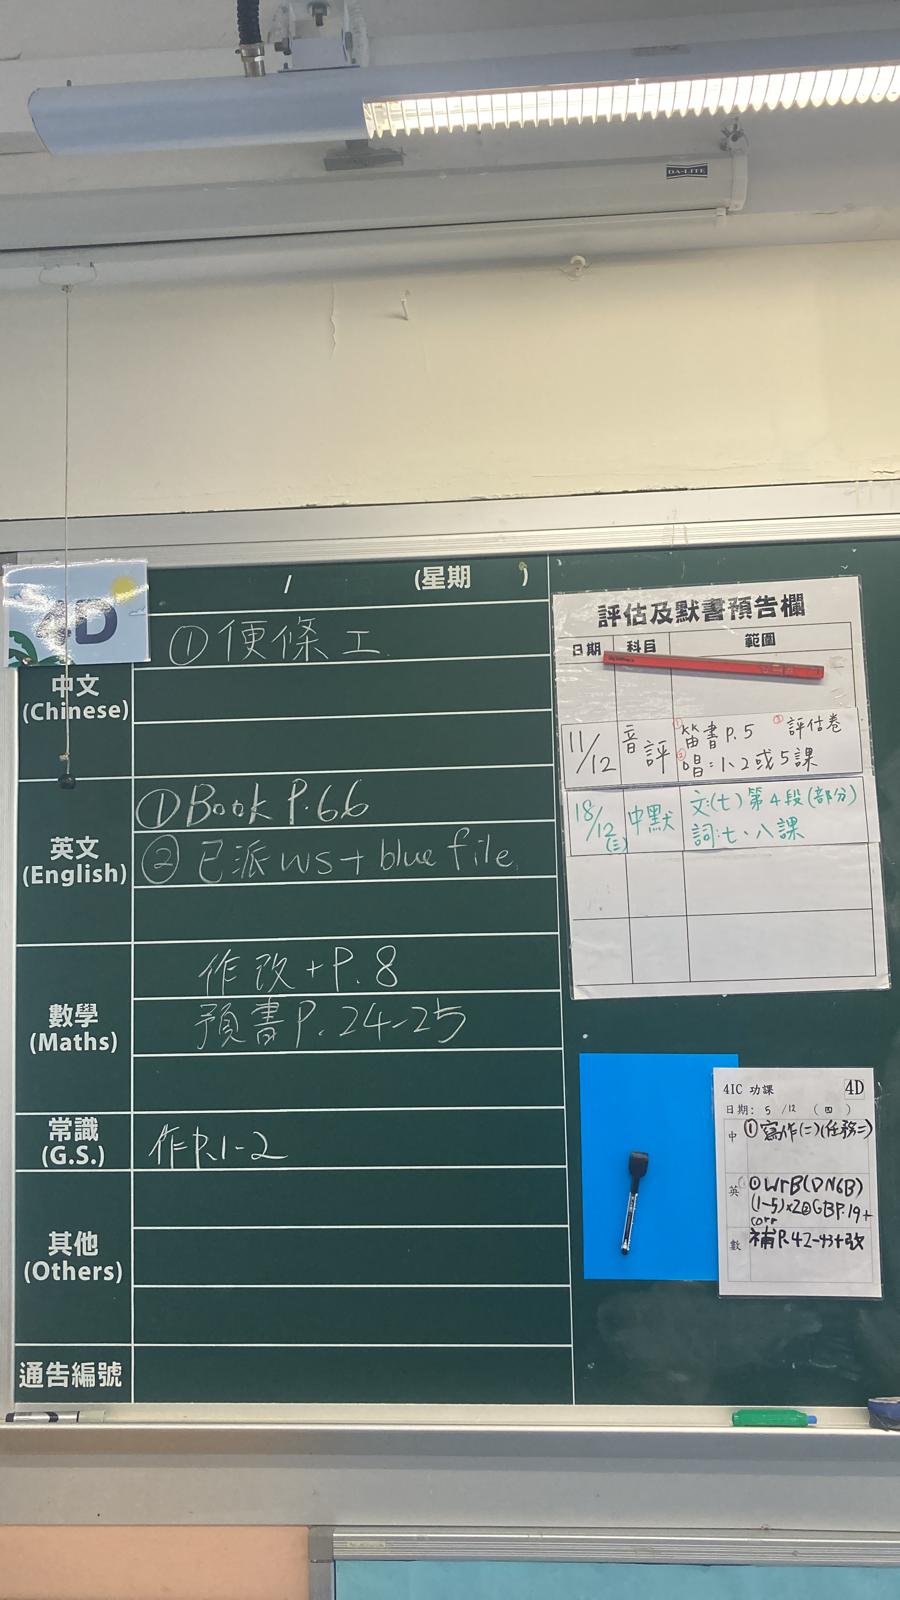 DA-LITE
4D
/ (星期 )
中文
(Chinese)
①便條工
英文
(English)
①Book P.66
②已派ws+blue file
數學
(Maths)
作改+P.8
預書P.24-25
常識
(G.S.)
作P.1-2
其他
(Others)
通告編號
評估及默書預告欄
日期 科目 範圍
11/12 音評 ①笛書P.5 ③評估卷
②唱:1、2或5課
18/12(三) 中默 文:(七)第4段(部分)
詞:七、八課
4IC 功課 4D
日期: 5 /12 (四)
中 ①寫作(二)(任務二)
英 ①WrB(DN6B)
(1-5)x2②GBP.19+
corr
數 補P.42-43+改